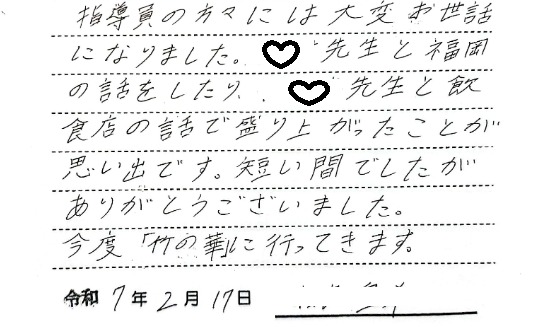 指導員の方々には大変お世話
になりました。 先生と福岡
の話をしたり、 先生と飲
食店の話で盛り上がったことが
思い出です。短い間でしたが
ありがとうございました。
今度「竹の華」に行ってきます。
令和 7年 2月 17日